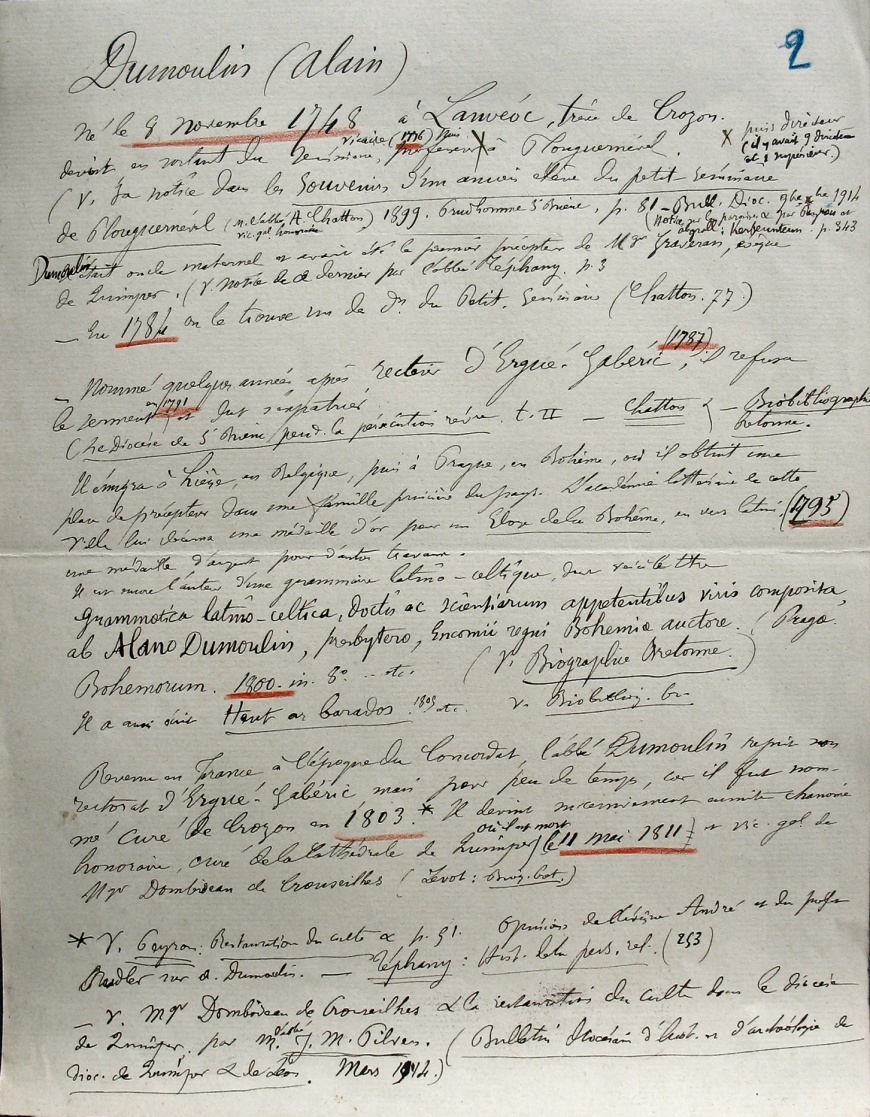 2
Dumoulin (Alain)
Né le 8 novembre 1748 à Lanvéoc, trève de Crozon.
devint en sortant du séminaire, vicaire (1776) puis professeur X à Plouguernével.
X puis directeur
(il y avait 9 directeurs
et 1 supérieur)
(V. Sa notice dans les Souvenirs d'un ancien élève du petit Séminaire
de Plouguernével (M. l'abbé A. Chatton) 1899. Prudhomme St Brieuc, p. 81 - Bull. Dioc. 1914
vic. gal honoraire
p. 343
Dumoulin était oncle maternel et avait été le premier précepteur de Mgr Graveran, évêque
de Quimper. (V. notice de ce dernier par l'abbé Téphany. p. 3
- En 1784 on le trouve un de Drs du Petit Séminaire (Chatton. 77)
- Nommé quelques années après recteur d'Ergué-Gabéric (1787), il refusa
le serment en 1791 et dut s'expatrier
(Le diocèse de St Brieuc pend. la persécution révre. t. II - Chatton - Biobibliographie
bretonne.
Il émigra à Liège, en Belgique, puis à Prague, en Bohême, où il obtint une
place de précepteur dans une famille princière du pays. L'académie littéraire de cette
ville lui décerna une médaille d'or pour un Eloge de la Bohême, en vers latins. (1795)
une médaille d'argent pour d'autres travaux.
Il est encore l'auteur d'une grammaire latino-celtique, dont voici le titre
grammatica latino-celtica, doctis ac scientiarum appetentibus viris composita,
ab Alano Dumoulin, presbytero, Encomii regni Bohemiæ auctore. (Pragæ
Bohemorum. 1800. in. 8º - etc. (V. Biographie Bretonne.)
Il a aussi écrit Hent ar barados. 1805 etc. V. Biobibliog. br.
Revenu en France à l'époque du Concordat, l'abbé Dumoulin reprit son
rectorat d'Ergué-Gabéric mais pour peu de temps, car il fut nom-
mé curé de Crozon en 1803.* Il devint successivement ensuite chanoine
honoraire, curé de la Cathédrale de Quimper où il est mort (le 11 mai 1811) et vic. gal de
Mgr Dombideau de Crouseilhes (Levot : Biog. bret.)
* V. Peyron : Restauration du culte & p. 91. Opinions de l'évêque André et du préfet
Rudler sur M. Dumoulin. - Téphany : Hist. de la pers. rel. (253)
- V. Mgr Dombideau de Crouseilhes & la restauration du culte dans le diocèse
de Quimper, par M. l'abbé J. M. Pilven. (Bulletin diocésain d'hist. et d'archéologie de
dioc. de Quimper & de Léon. Mars 1914.)